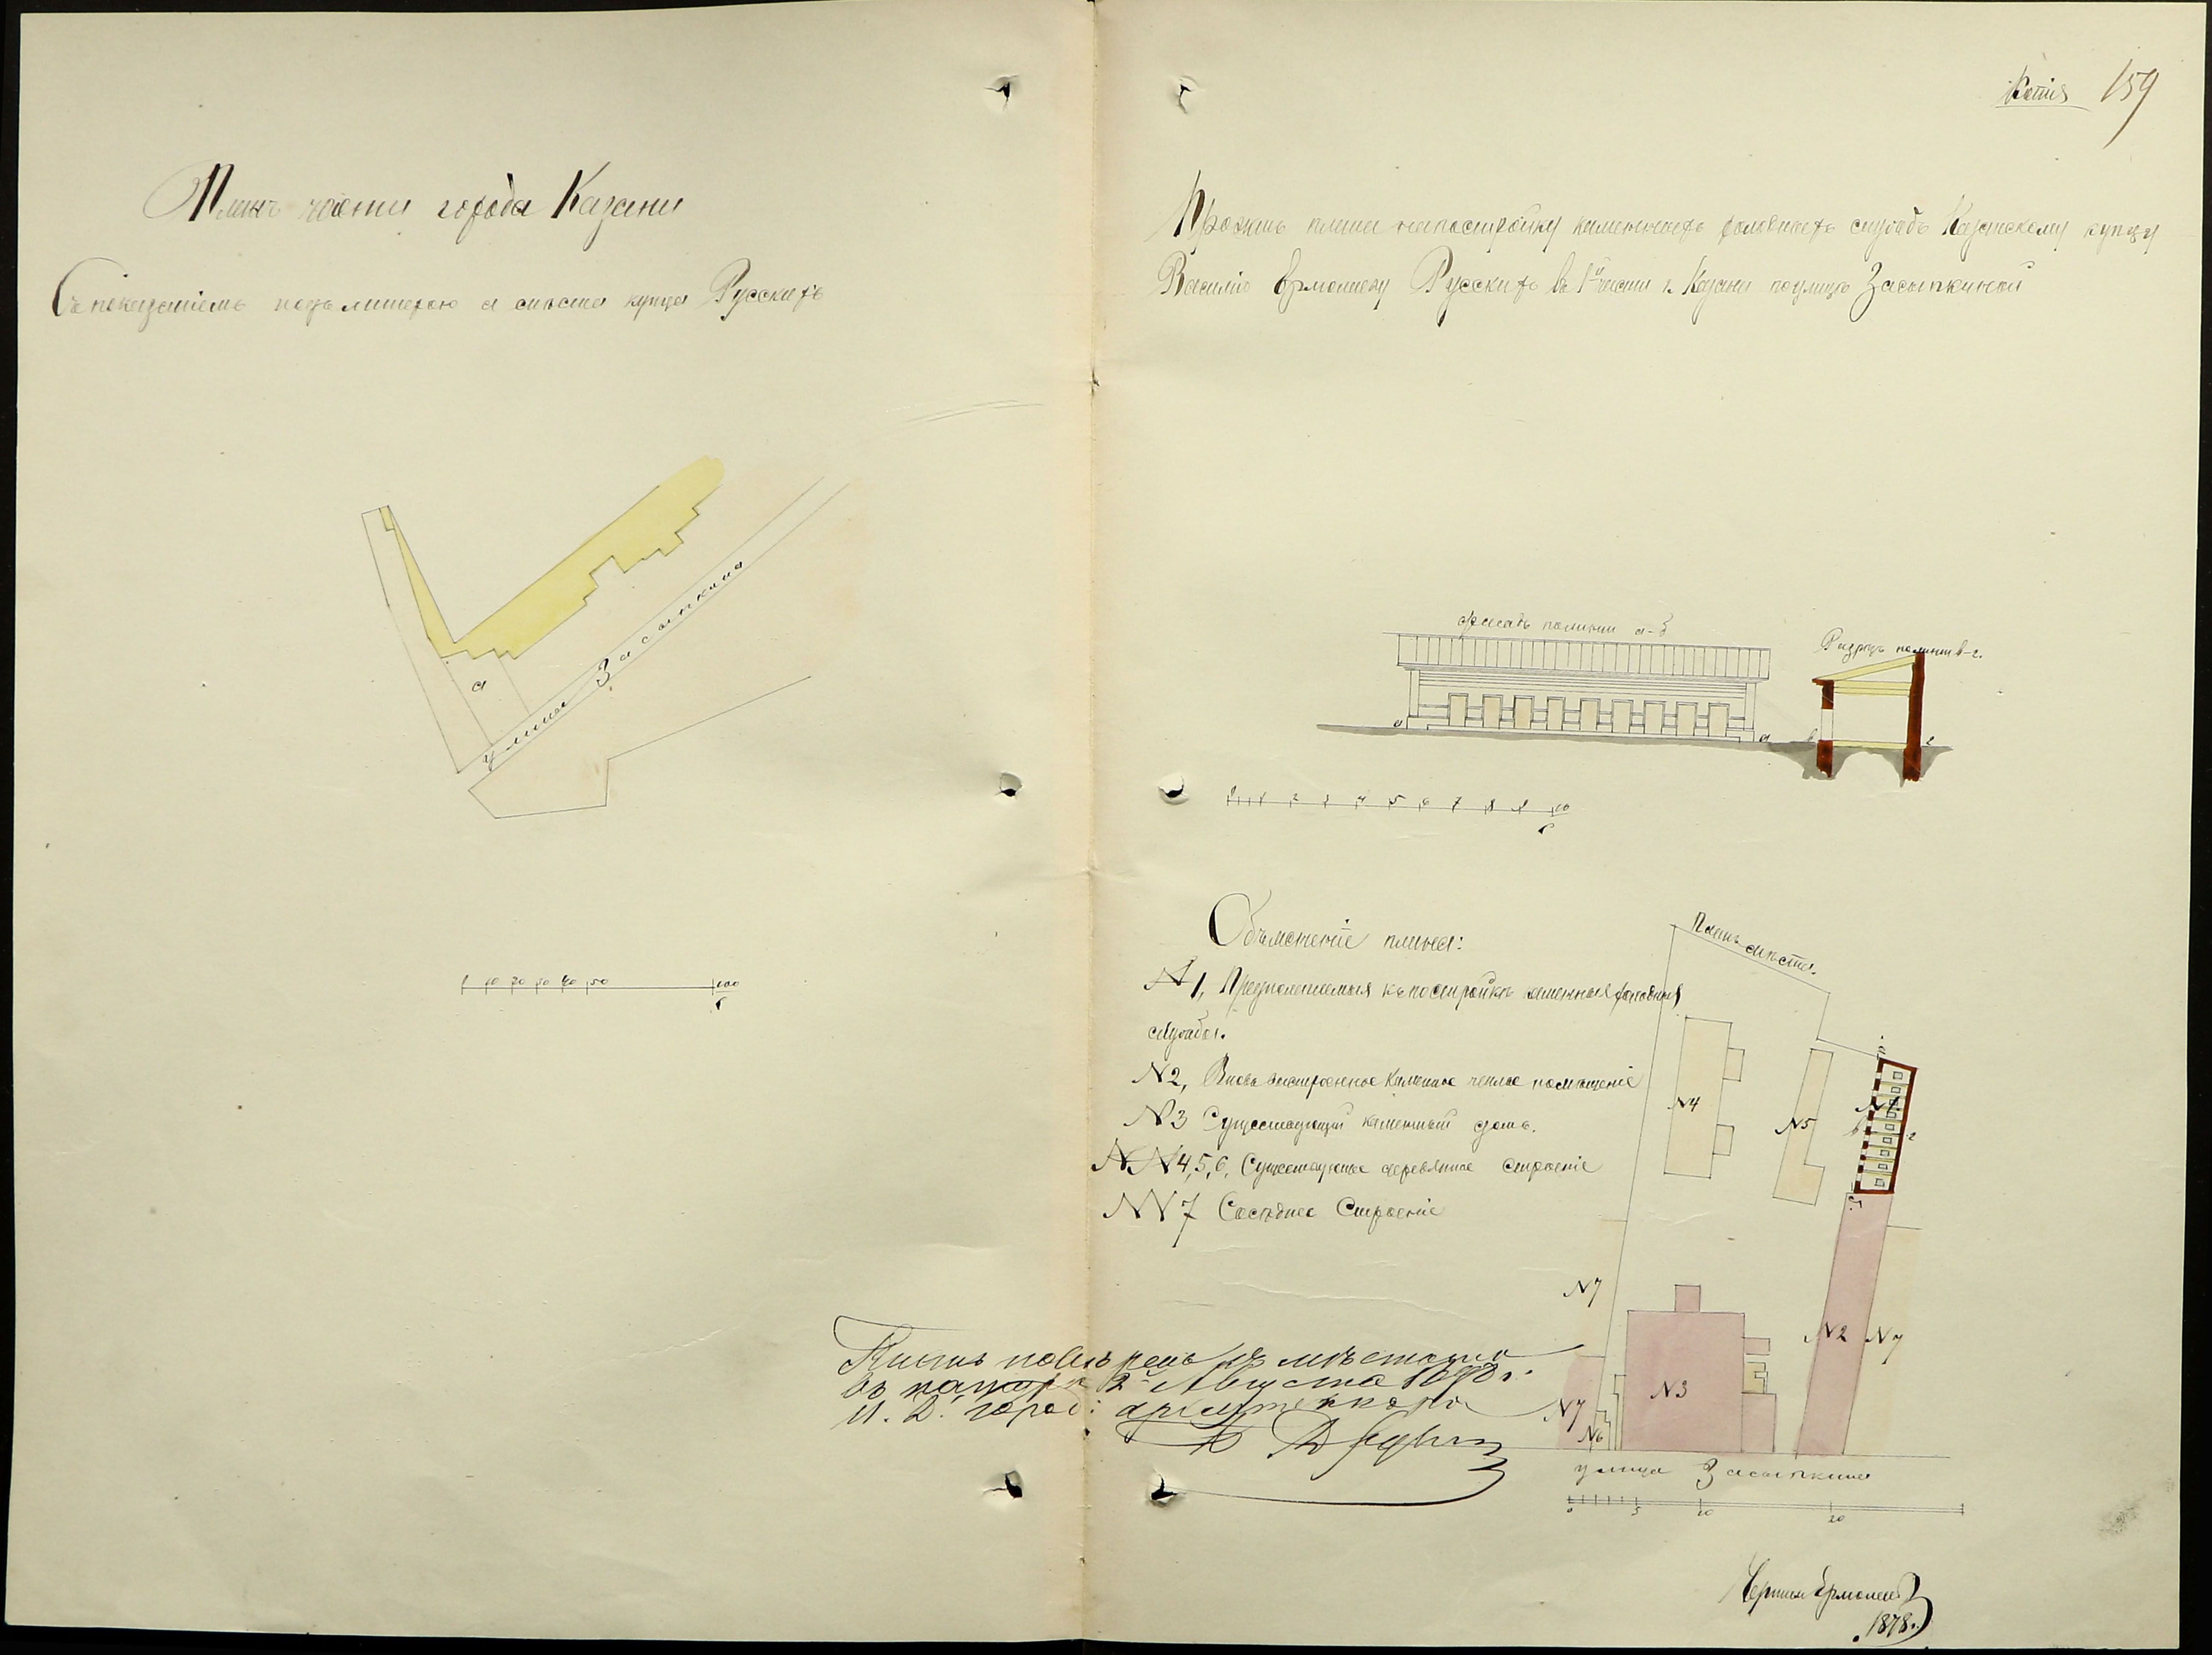 Планъ части города Казани
Съ показаніемъ подъ литерою а мѣста купца Русскихъ
а
улица Засыпкина
0 10 20 30 40 50 100
с
Копія 159
Проэктъ плана на постройку каменныхъ холодныхъ службъ Казанскому купцу
Василію Ермолаеву Русскихъ въ 1й части г. Казани по улицѣ Засыпкиной
Фасадъ по линіи а-б
Разрѣзъ по линіи в-г.
0 1 2 3 4 5 6 7 8 9 10
с
Объясненіе плана:
N 1, Предполагаемыя къ постройкѣ каменныя холодныя
службы.
N 2, Вновь выстроенное каменное теплое помѣщеніе
N 3 Существующій каменный домъ.
NN 4, 5, 6, Существующее деревянное строеніе
NN 7 Сосѣднее Строеніе
Планъ мѣста.
N4
N5
N1
N7
N2
N7
N3
N7
N6
улица Засыпкина
0 5 10 20
въ натурѣ 2 Августа
И. Д. город: архитектора
Чертилъ Ермолаевъ
1878 г.